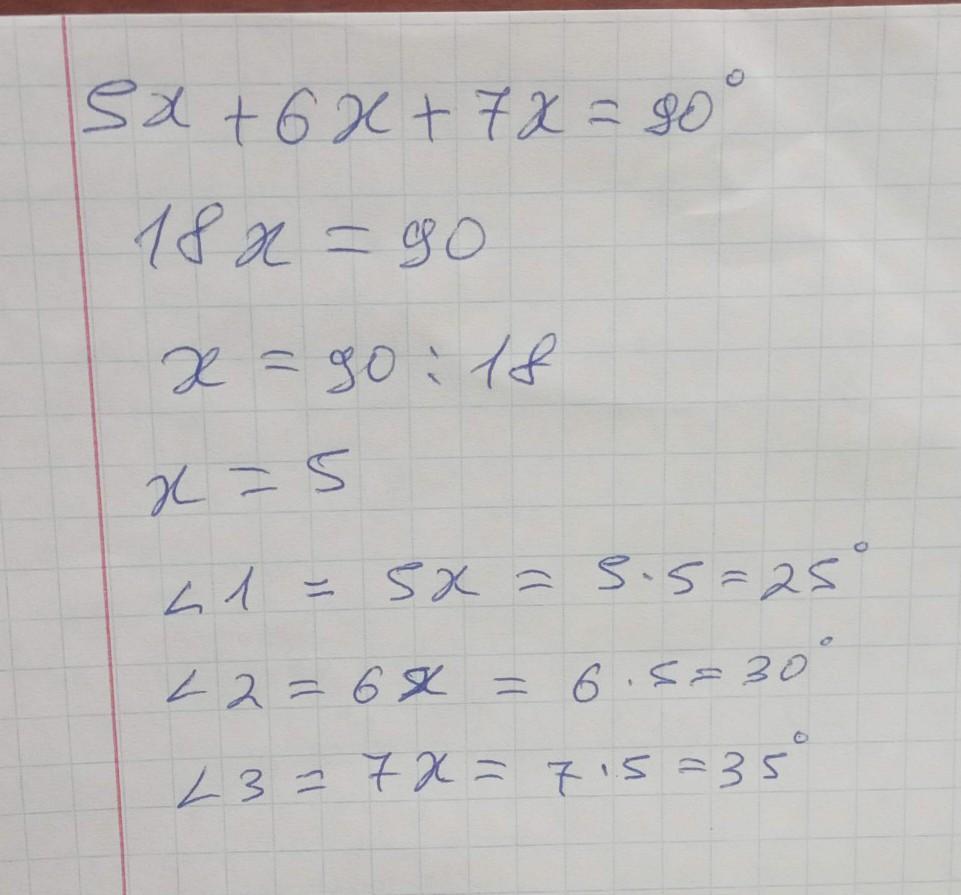 5x + 6x + 7x = 90°
18x = 90
x = 90 : 18
x = 5
∠1 = 5x = 5·5 = 25°
∠2 = 6x = 6·5 = 30°
∠3 = 7x = 7·5 = 35°